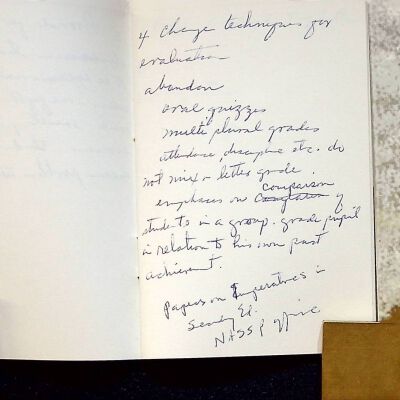 4 change techniques for
evaluation
abandon
oral quizzes
multi plural grades
attendance, discipline etc. do
not mix – letter grade.
emphases on comparison of
students in a group. grade pupil
in relation to his own past
achievement.
Papers on Imperatives in
Secondy Ed.
NASSP office